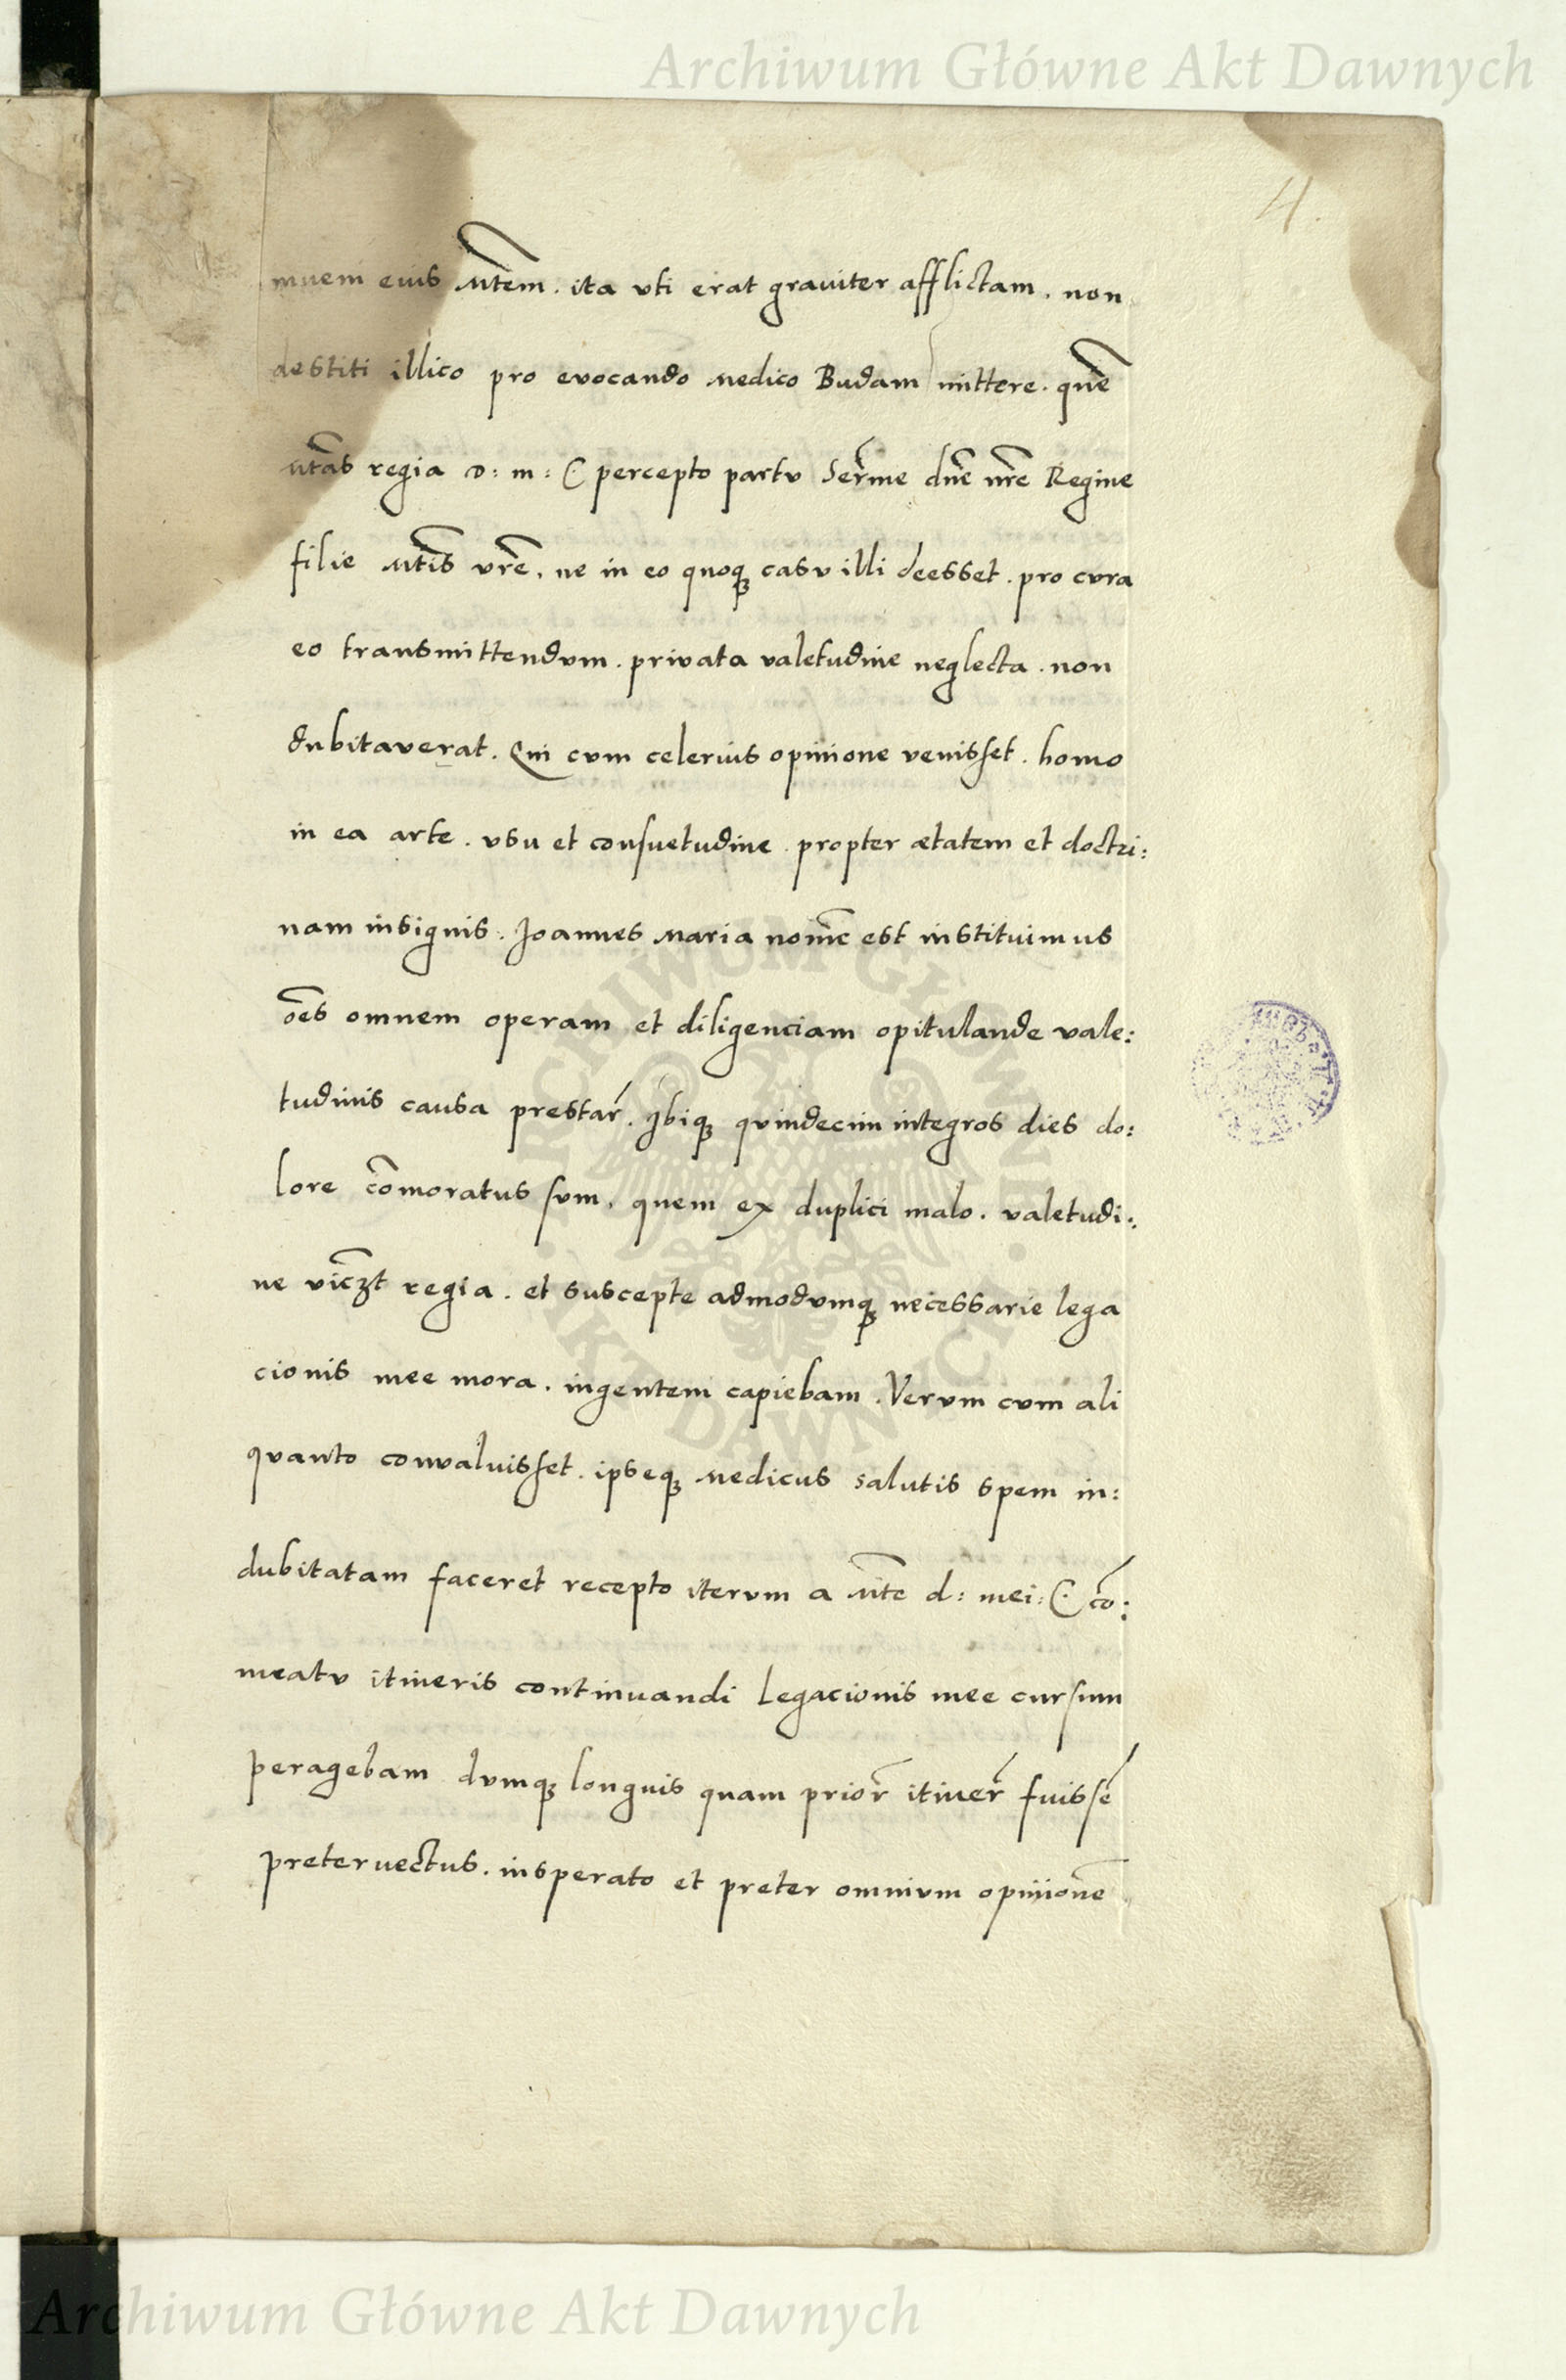 Archiwum Główne Akt Dawnych
4.
mueni eius Mtem. ita uti erat grauiter afflictam. non
destiti illico pro evocando Medico Budam mittere. quē
Mtas regia d: m: C percepto partu Serme dne nre Regine
filie Mtis vre. ne in eo quoq casu illi deesset. pro cura
eo transmittendum. privata valetudine neglecta. non
dubitaverat. Qui cum celerius opinione venisset. homo
in ea arte. usu et consuetudine propter ætatem et doctri:
nam insignis. Joannes Maria nomē est instituimus
oēs omnem operam et diligenciam opitulande vale:
tudinis causa prestar. Ibiq quindecim integros dies do:
lore cōmoratus sum. quem ex duplici malo. valetudi:
ne viczt regia. et suscepte admodumq necessarie lega
cionis mee mora. ingentem capiebam. Verum cum ali
quanto convaluisset. ipseq Medicus salutis spem in:
dubitatam faceret recepto iterum a Mte d: mei: C cō:
meatu itineris continuandi Legacionis mee cursum
peragebam dumq longius quam prior itiner fuisse
preteruectus. insperato et preter omnium opinionē
ARCHIWUM GŁÓWNE AKT DAWNYCH
Archiwum Główne Akt Dawnych